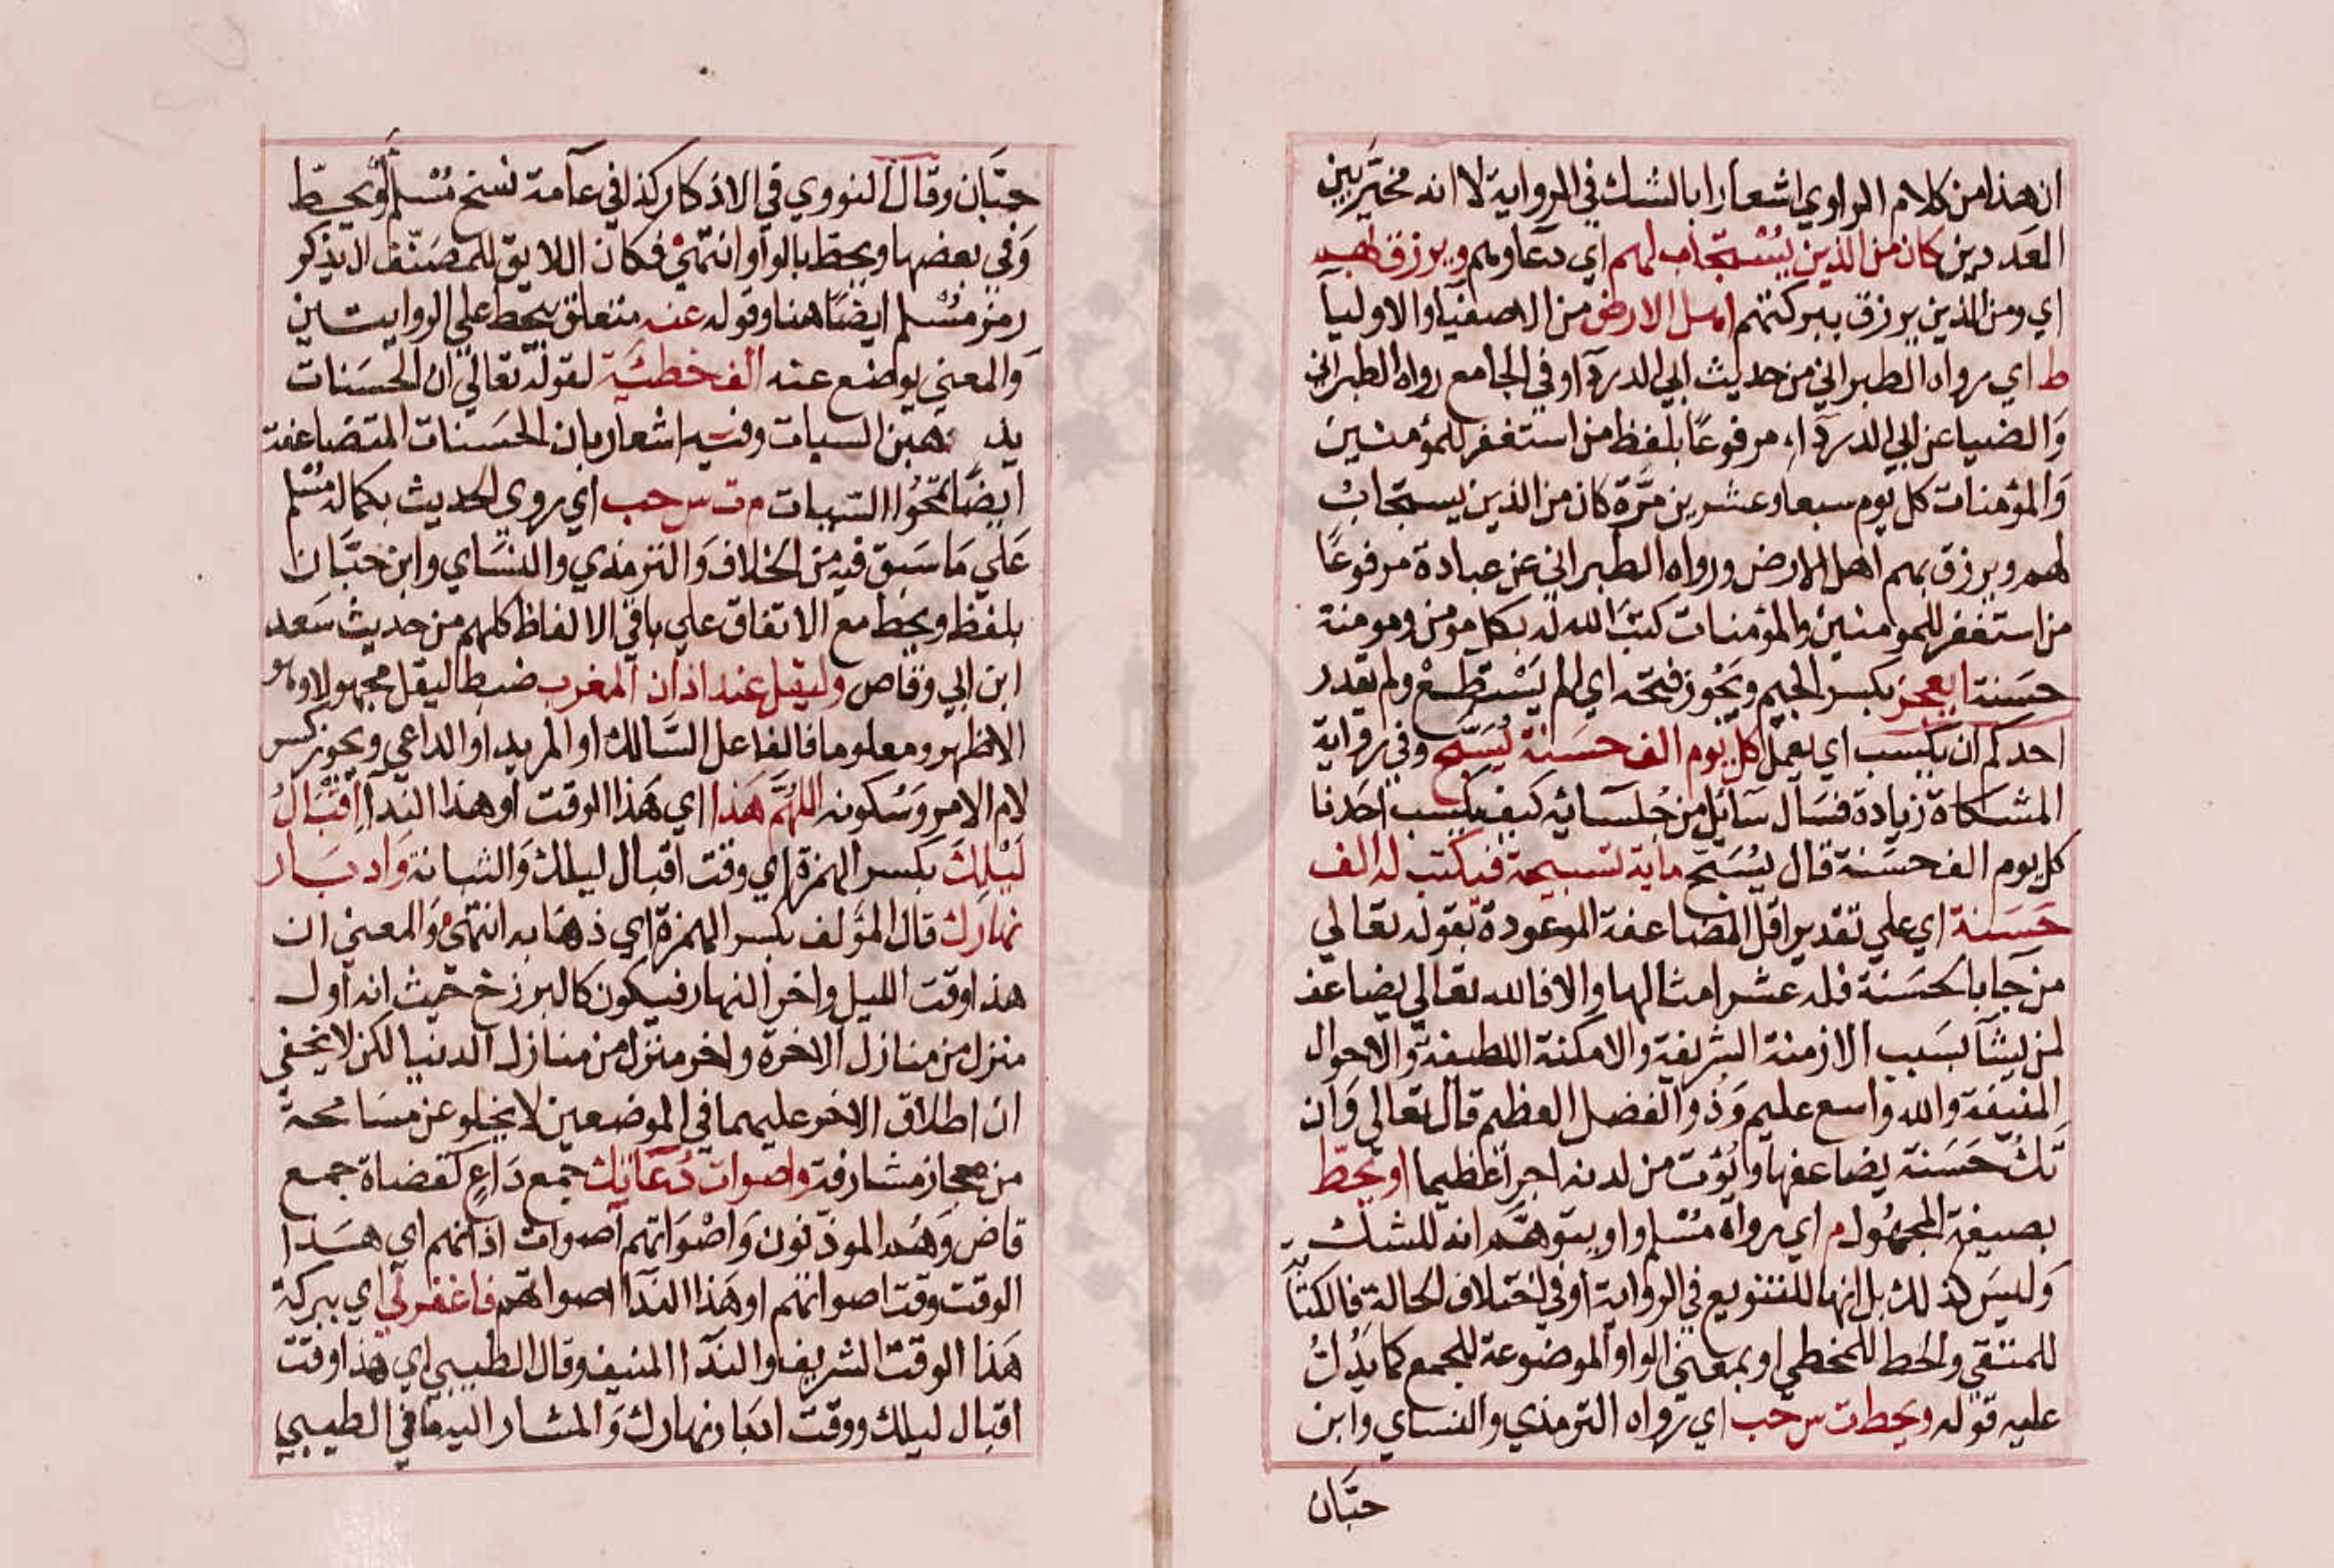 ان هذا من كلام الراوي اشعارا بالشك في الرواية لا انه مخير بين
العددين كان من الذين يُسْتجاب لهم اي دعاوهم ويرزق بهم
اي ومن الذين يرزق ببركتهم اهل الارض من الاصفيا والاوليا
ط اي رواه الطبراني من حديث ابي الدردآ وفي الجامع رواه الطبراني
وَالضيا عن ابي الدردآء مرفوعًا بلفظ من استغفر للمؤمنين
وَالمؤمنات كل يوم سبعا وعشرين مرَّة كان من الذين يستجاب
لهم ويرزق بهم اهل الارض ورواه الطبراني عن عبادة مرفوعًا
من استغفر للمومنين والمؤمنات كتبَ الله له بكل مومن ومومنة
حسَنة ايعجز بكسر الجيم ويَجُوز فتحه اي الم يَسْتطِعْ ولم يقدر
احدكم ان يكسب اي يعمل كل يوم الف حسَنة يُسَبّح وفي رواية
المشكاة زيادة فسَال سَآئل من جُلسآئه كيف يكسب احَدنا
كل يوم الف حسَنة قال يُسَبّح ماية تسبيحة فيكتب له الف
حَسَنة اي على تقدير اقل المضاعفة الموعودة بقوله تعالي
من جَا بالحسَنة فله عشر امثالها والا فالله تعالي يضاعف
لمن يشآ بسَبب الازمنة الشريفة والامكنة اللطيفة والاحوال
المنيفة والله واسع عليم وَذُو الفضل العظيم قال تعالي وَان
تَكُ حَسَنة يضاعفها ويُؤت من لدنه اجرًا عظيما او يحطّ
بصيغة المجهُول م اي رواه مسْلم واو يتوهَّم انه للشك
وَليسَ كذلك بل انها للتنويع في الرواية او في اختلاف الحالة فالكتَابَة
للمتقي والحط للمخطي او بمعني الواو الموضوعة للجمع كما يَدُلّ
عليه قوله ويحط ت س حب اي رواه الترمذي والنساي وابن
حبّان
حبَّان وقال النووي في الاذكار كذا في عآمة نسخ مُسْلم او يحطّ
وَفي بعضها ويحطّ بالواو انتهي فكان اللايق للمصَنّف ان يذكر
رمز مسْلم ايضًا هنا وقوله عنه متعلق بيحط علي الروايتين
وَالمعني يوضع عنه الف خطيَّة لقوله تعالي ان الحسَنات
يذهبن السيات وفيه اشعار بان الحَسنات المتضاعفة
ايضًا تمحُوا السيات م ت س حب اي روي الحديث بكماله مسْلم
عَلي مَا سَبق فيه من الخلاف وَالترمذي والنسَاي وابن حبَّان
بلفظ ويحط مع الاتفاق علي باقي الالفاظ كلهم من حديث سَعد
ابن ابي وقاص وليقل عند اذان المغرب ضبط ليقل مجهولا وهو
الاظهر ومعلوما فالفاعل السَّالك او المريد او الداعي ويجوز كسر
لام الامر وَسُكونه اللهُمَّ هَذا اي هَذا الوقت او هذا الندآ اِقْبَالُ
لَيْلِكَ بكسر الهمزة اي وقت اقبال ليلك وَاتيانه وَادبَار
نهَارِك قال المؤلف بكسر الهمزة اي ذهَابه انتهي وَالمعني ان
هذا وقت الليل واخر النهار فيكون كالبرزخ حَيث انه اول
منزل من منازل الاخرة واخر منزل من منازل الدنيا لكن لا يخفي
ان اطلاق الاخر عليهما في الموضعين لا يخلو عن مسَامحة
من مجاز مشارفة واصوات دُعَاتِك جمع دَاعٍ كقضاة جمع
قاض وَهُم الموذنون وَاصْوَاتهم اصوات اذانهم اي هَذا
الوقت وقت اصواتهم او هَذا الندآ اصواتهم فاغفر لي اي ببركة
هَذا الوقت الشريف والندآ المنيف وقال الطيبي اي هذا وقت
اقبال ليلك ووقت ادبَار نهارك وَالمشار اليه مَا في الطيبي